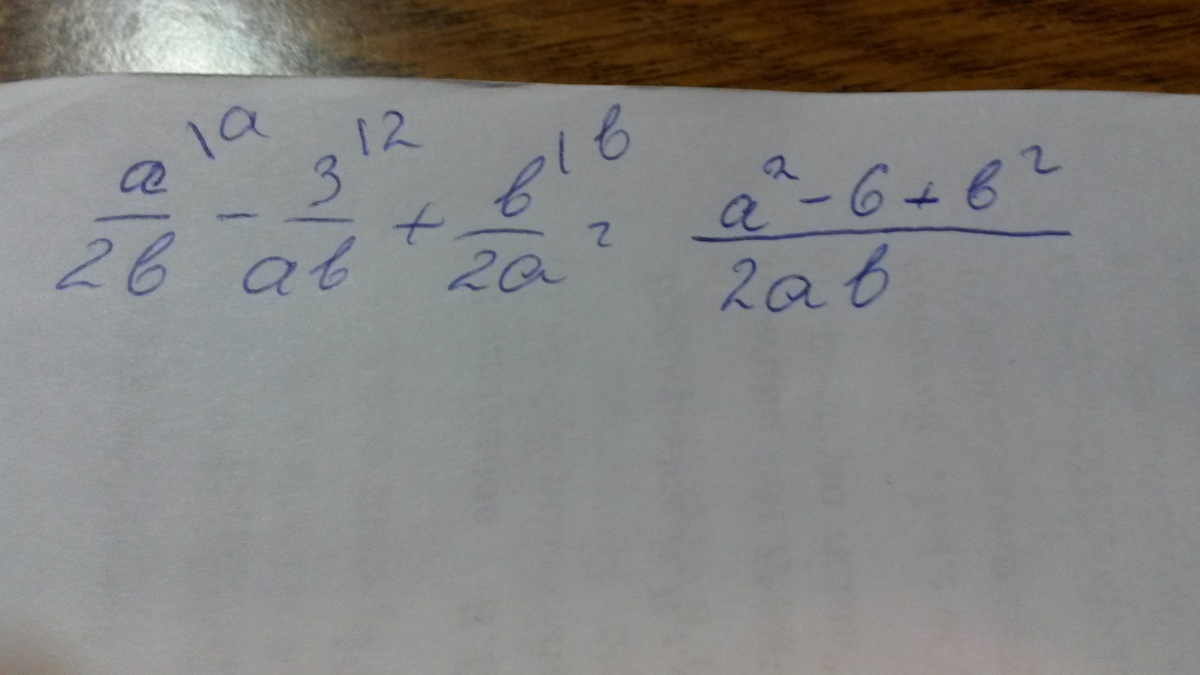 a/2b \a - 3/ab \2 + b/2a \b = a² - 6 + b²/2ab